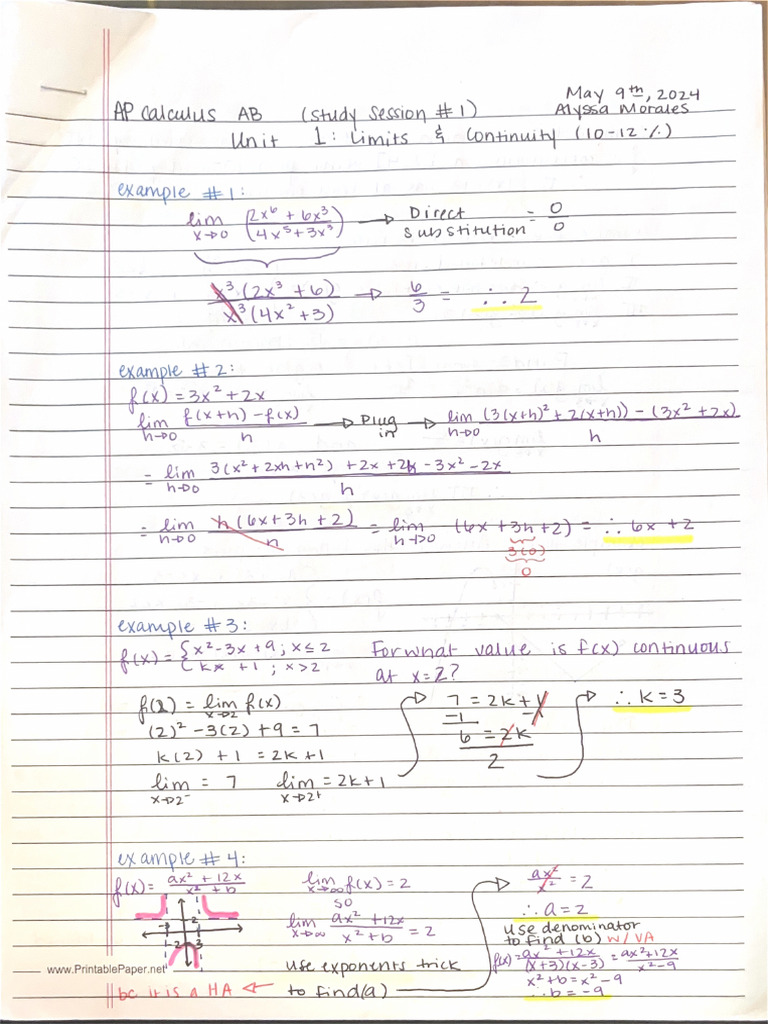 May 9th, 2024
AP Calculus AB (study session #1) Alyssa Morales
Unit 1: Limits & Continuity (10-12%)
example #1:
lim x→0 (2x⁶ + 6x³)/(4x⁵ + 3x³) → Direct substitution = 0/0
x³(2x³ + 6)/x³(4x² + 3) → 6/3 = ∴ 2
example #2:
f(x) = 3x² + 2x
lim h→0 (f(x+h) - f(x))/h → Plug in → lim h→0 ((3(x+h)² + 2(x+h)) - (3x² + 2x))/h
= lim h→0 (3(x² + 2xh + h²) + 2x + 2h - 3x² - 2x)/h
= lim h→0 h(6x + 3h + 2)/h = lim h→0 (6x + 3h + 2) = ∴ 6x + 2
3(0)
0
example #3:
f(x) = { x² - 3x + 9 ; x ≤ 2 For what value is f(x) continuous
{ kx + 1 ; x > 2 at x = 2?
f(2) = lim x→2 f(x)
(2)² - 3(2) + 9 = 7
k(2) + 1 = 2k + 1
lim x→2⁻ = 7 lim x→2⁺ = 2k + 1
7 = 2k + 1
-1 -1
6 = 2k
2
∴ k = 3
example #4:
f(x) = (ax² + 12x)/(x² + b)
-3 2
-2 3
lim x→∞ f(x) = 2
so
lim x→∞ (ax² + 12x)/(x² + b) = 2
use exponents trick
to find (a)
bc it is a HA ←
ax²/x² = 2
∴ a = 2
use denominator
to find (b) w/ VA
f(x) = (ax² + 12x)/((x+3)(x-3)) = (ax² + 12x)/(x² - 9)
x² + b = x² - 9
∴ b = -9
www.PrintablePaper.net